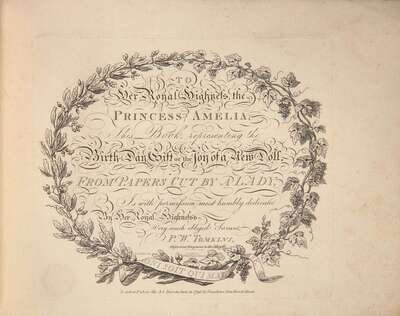 TO
Her Royal Highness, the
PRINCESS AMELIA,
This Book, representing the
Birth-Day Gift or the Joy of a New Doll,
FROM PAPERS CUT BY A LADY,
Is with permission most humbly dedicated
By Her Royal Highness's
Very much obliged Servant,
P. W. TOMKINS,
SOIT QUI MAL